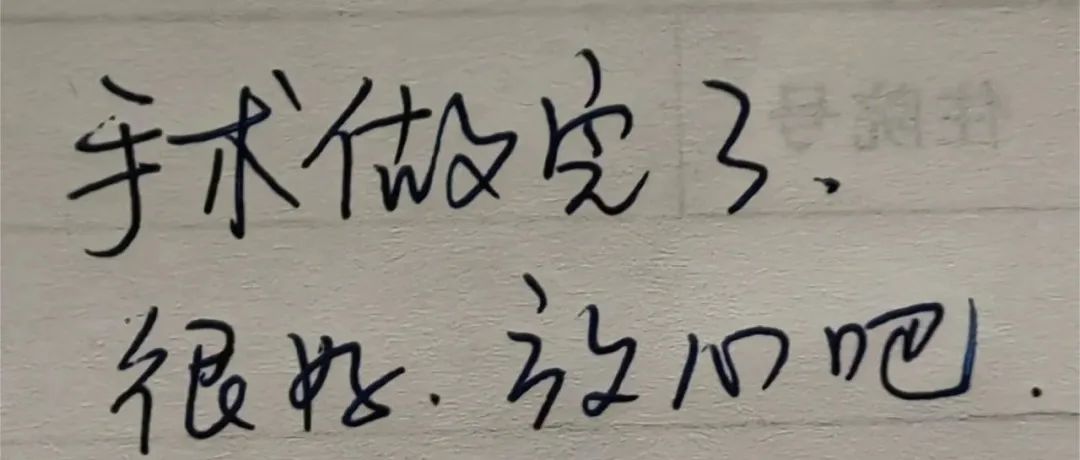 手术做完了.
很好.放心吧.
住院号